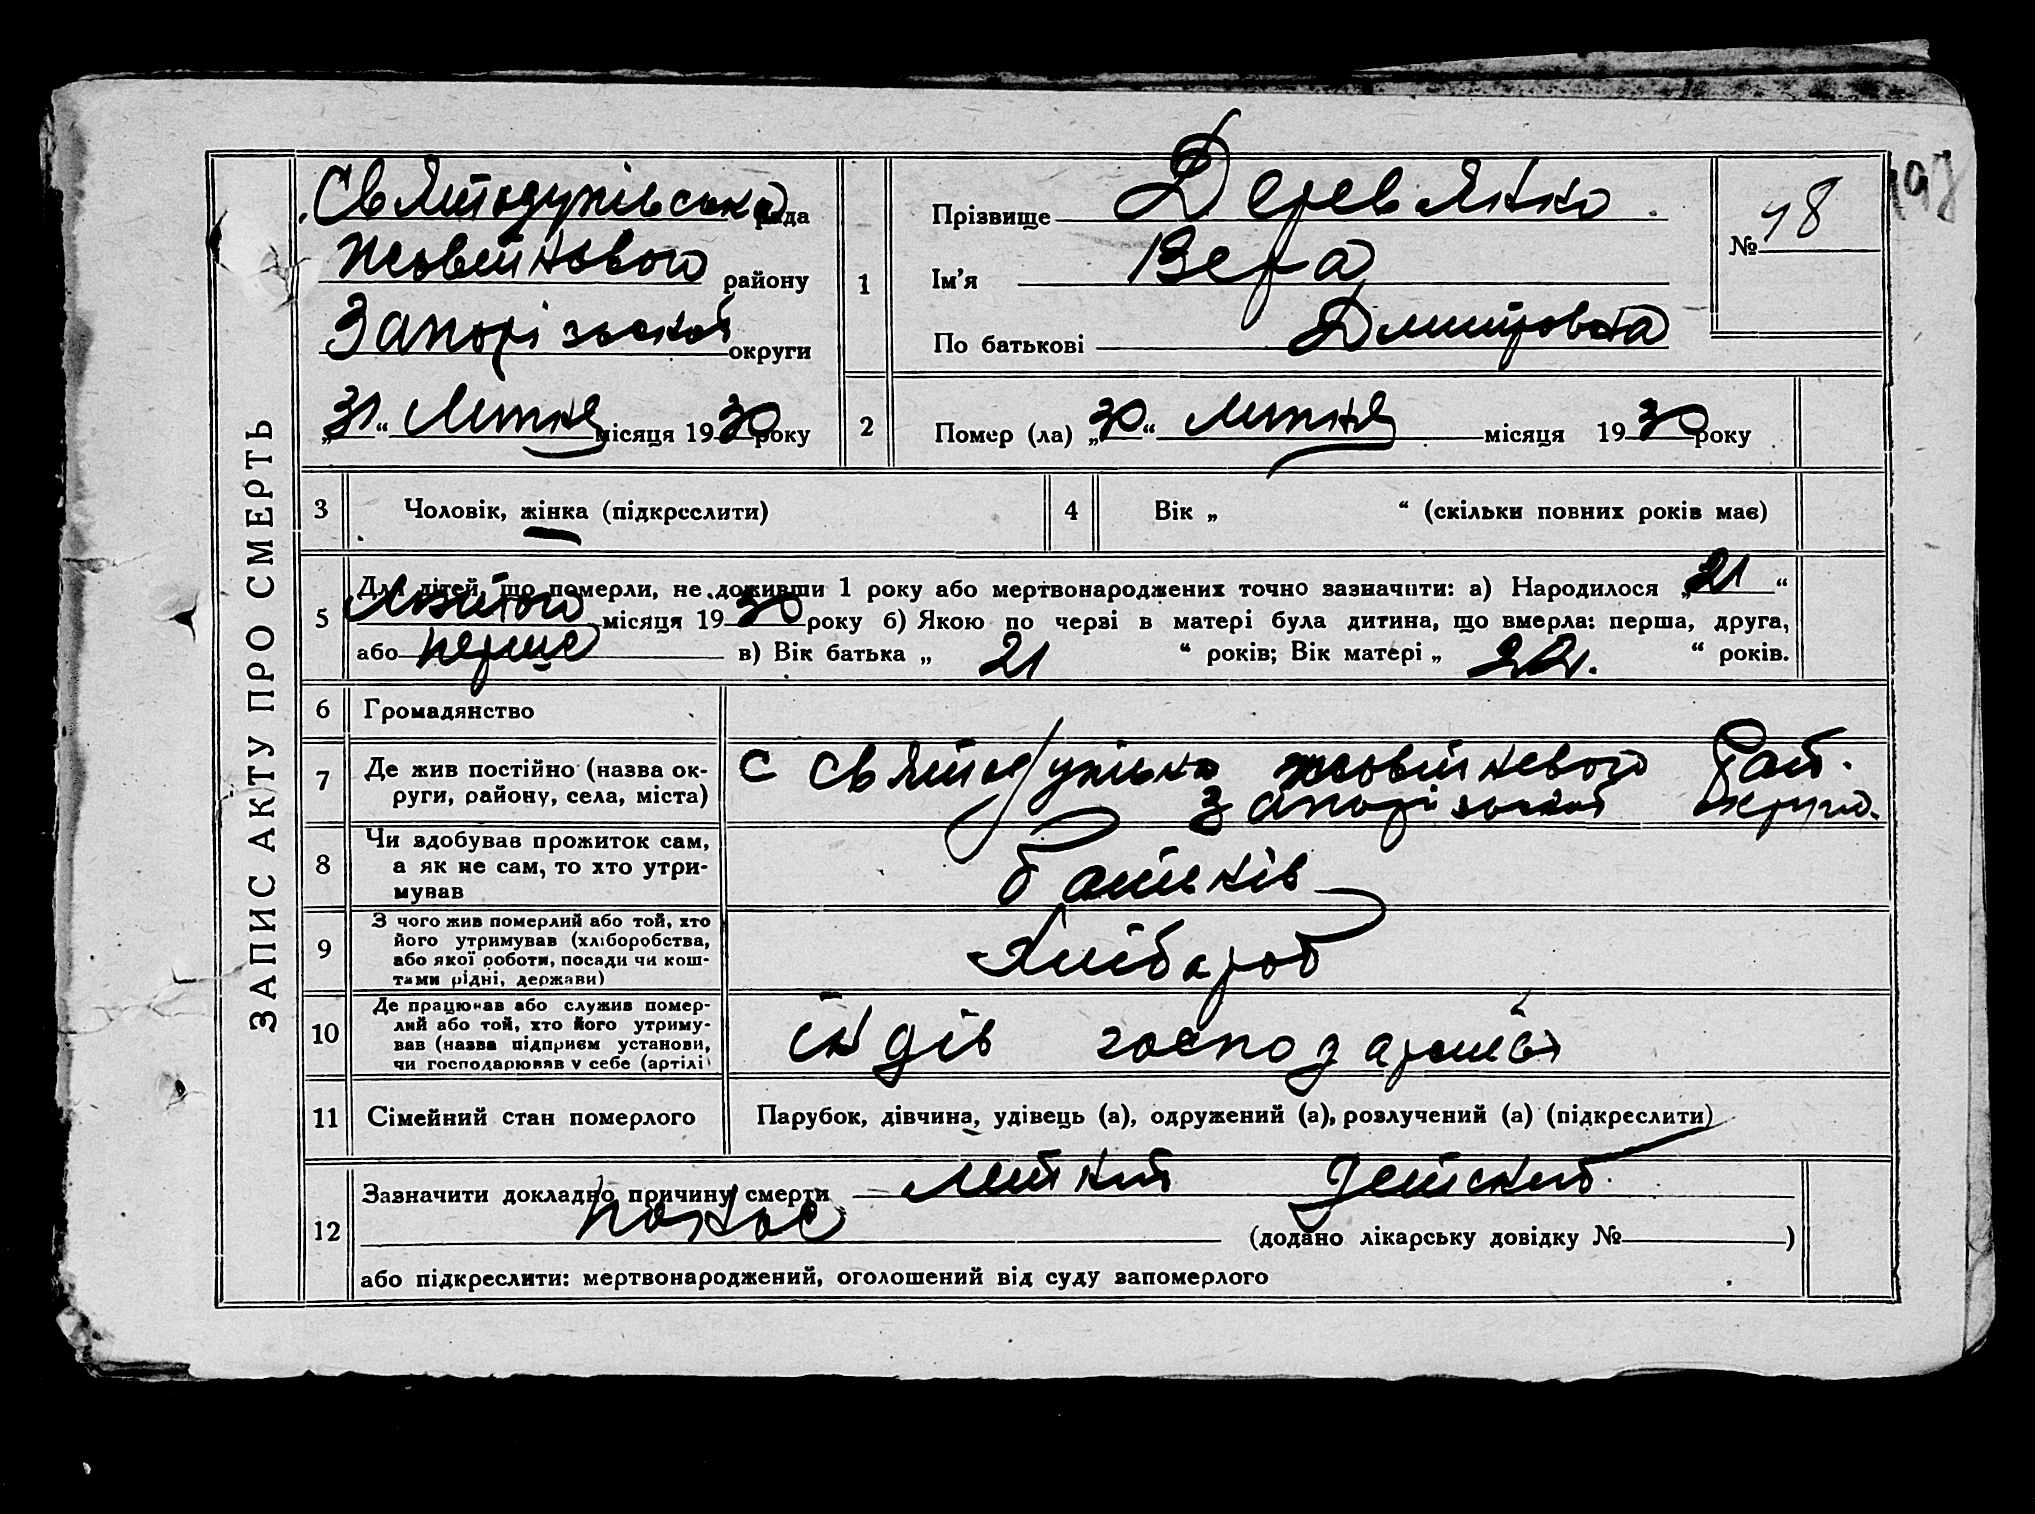 ЗАПИС АКТУ ПРО СМЕРТЬ
Святодухівська рада
Жовтневого району
Запорізької округи
„31“ Липня місяця 1930 року
1
Прізвище Деревянко
Ім'я Вера
По батькові Дмитровна
№ 48
198
2 Помер (ла) „30“ липня місяця 1930 року
3 Чоловік, жінка (підкреслити)
4 Вік „ “ (скільки повних років має)
5 Для дітей, що померли, не доживши 1 року або мертвонароджених точно зазначити: а) Народилося „21“
Лютого місяця 1930 року б) Якою по черзі в матері була дитина, що вмерла: перша, друга,
або перше в) Вік батька „ 21 “ років; Вік матері „ 22. “ років.
6 Громадянство
7 Де жив постійно (назва ок-
руги, району, села, міста)
с Святодухівка Жовтневого Рай.
Запорізької округи.
8 Чи здобував прожиток сам,
а як не сам, то хто утри-
мував
батьків
9 З чого жив померлий або той, хто
його утримував (хліборобства,
або якої роботи, посади чи кош-
тами рідні, держави)
Хлібароб
10 Де працював або служив помер-
лий або той, хто його утриму-
вав (назва підприєм установи,
чи господарював у себе (артілі)
індів господарстві
11 Сімейний стан померлого
Парубок, дівчина, удівець (а), одружений (а), розлучений (а) (підкреслити)
12 Зазначити докладно причину смерти летний детский
понос (додано лікарську довідку № )
або підкреслити: мертвонароджений, оголошений від суду запомерлого